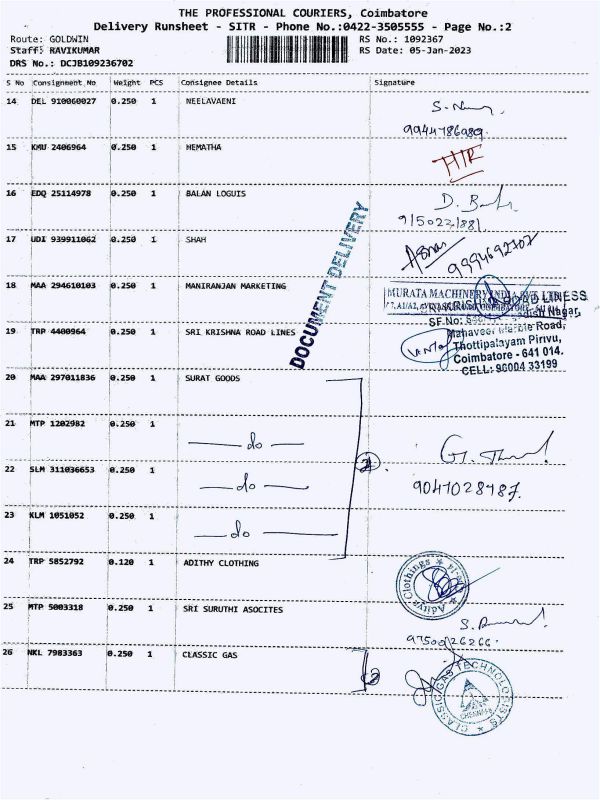 THE PROFESSIONAL COURIERS, Coimbatore
Delivery Runsheet - SITR - Phone No.:0422-3505555 - Page No.:2
Route: GOLDWIN RS No.: 1092367
Staff: RAVIKUMAR RS Date: 05-Jan-2023
DRS No.: DCJB109236702
S No Consignment_No Weight PCS Consignee Details Signature
14 DEL 910060027 0.250 1 NEELAVAENI
9944786989
15 KMU 2406964 0.250 1 HEMATHA
16 EDQ 25114978 0.250 1 BALAN LOGUIS
17 UDI 939911062 0.250 1 SHAH
9994692707
DOCUMENT DELIVERY
18 MAA 294610103 0.250 1 MANIRANJAN MARKETING
MURATA MACHINERY INDIA PVT. LTD
KRISHNA ROAD LINESS
19 TRP 4400964 0.250 1 SRI KRISHNA ROAD LINES
SF.No:
Mahaveer Marble Road,
Thottipalayam Pirivu,
Coimbatore - 641 014.
CELL: 96004 33199
20 MAA 297011036 0.250 1 SURAT GOODS
21 MTP 1202982 0.250 1
do
22 SLM 311036653 0.250 1
do
23 KLM 1051052 0.250 1
do
24 TRP 5852792 0.120 1 ADITHY CLOTHING
25 MTP 5003318 0.250 1 SRI SURUTHI ASOCITES
26 NKL 7983363 0.250 1 CLASSIC GAS
CLASSIC GAS TECHNOLOGISTS